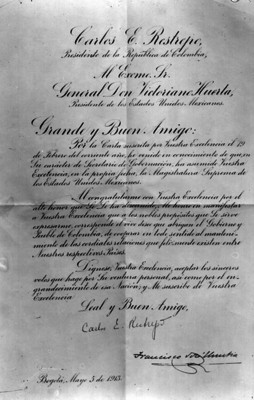 Carlos E. Restrepo,
Presidente de la República de Colombia,
Al Excmo. Sr.
General Don Victoriano Huerta,
Presidente de los Estados Unidos Mexicanos.
Grande y Buen Amigo:
Por la Carta suscrita por Vuestra Excelencia el 19
de Febrero del corriente año, he venido en conocimiento de que, en
Su carácter de Secretario de Gobernación, ha asumido Vuestra
Excelencia, en la propia fecha, la Magistratura Suprema de
los Estados Unidos Mexicanos.
Al congratularme con Vuestra Excelencia por el
alto honor que Se Le ha me honro en manifestar
a Vuestra Excelencia que a los nobles propósitos que Se sirve
expresarme, corresponde el vivo deseo que abrigan el Gobierno y
Pueblo de Colombia, de cooperar en todo sentido al
miento de las cordiales relaciones que felizmente existen entre
Nuestros respectivos Países.
Dígnese, Vuestra Excelencia, aceptar los sinceros
votos que hago por Su ventura personal, así como por el en-
grandecimiento de esa Nación; y Me suscribo de Vuestra
Excelencia
Leal y Buen Amigo,
Carlos E. Restrepo
Francisco José Urrutia
Bogotá, Mayo 5 de 1913.